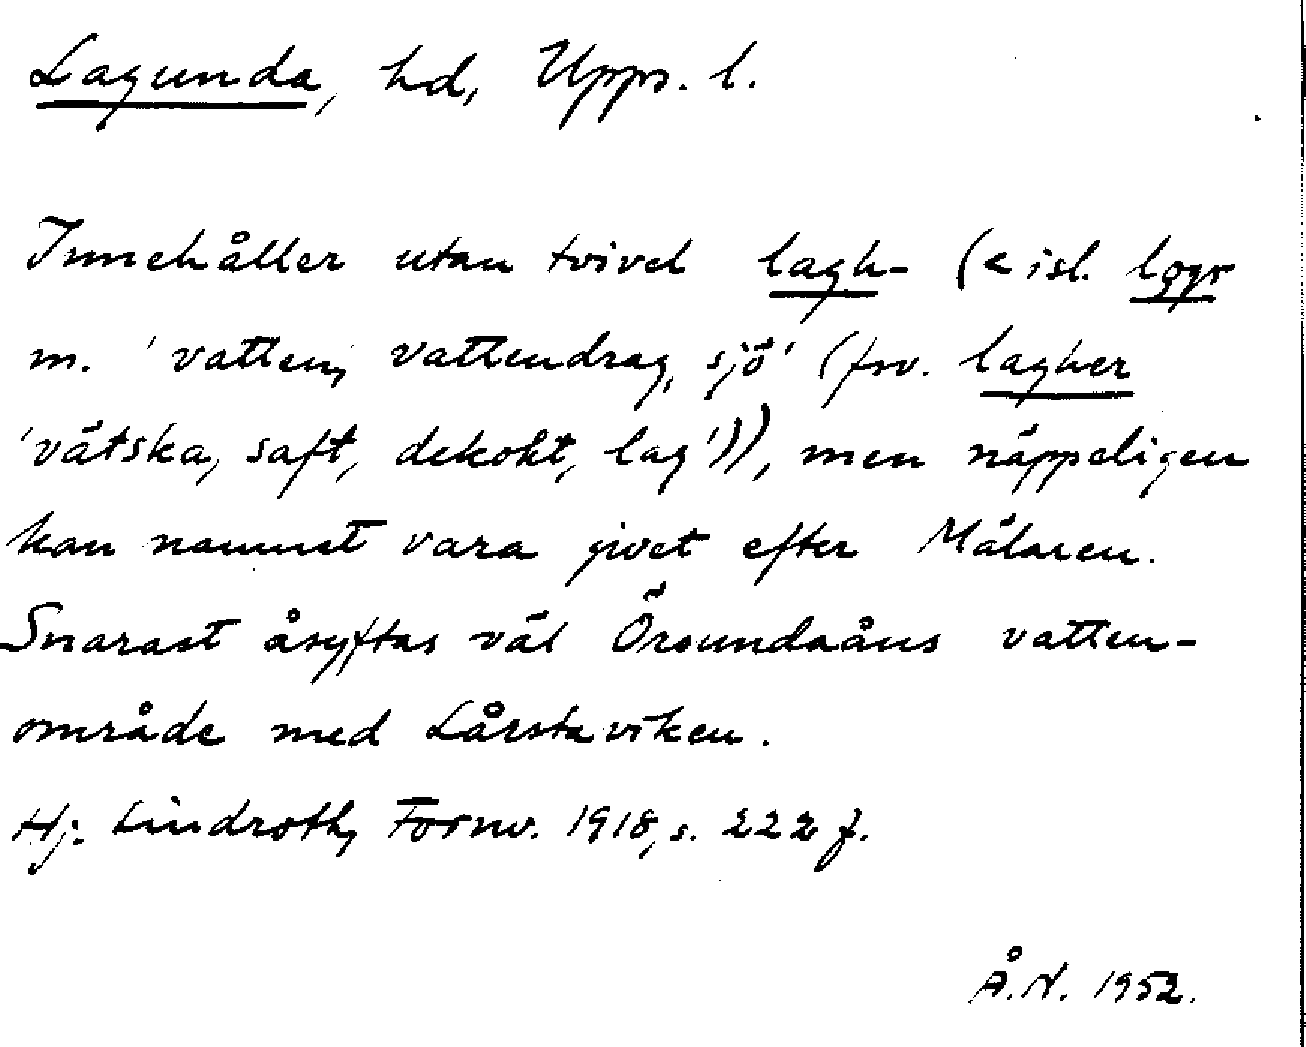 Lagunda, hd, Upps. l.
Innehåller utan tvivel lagh- (< isl. lǫgr
m. 'vatten, vattendrag, sjö' (fsv. lagher
'vätska, saft, dekokt, lag')), men näppeligen
kan namnet vara givet efter Mälaren.
Snarast åsyftas väl Örsundaåns vatten-
område med Lårstaviken.
Hj. Lindroth, Fornv. 1918, s. 222 f.
Å.N. 1952.